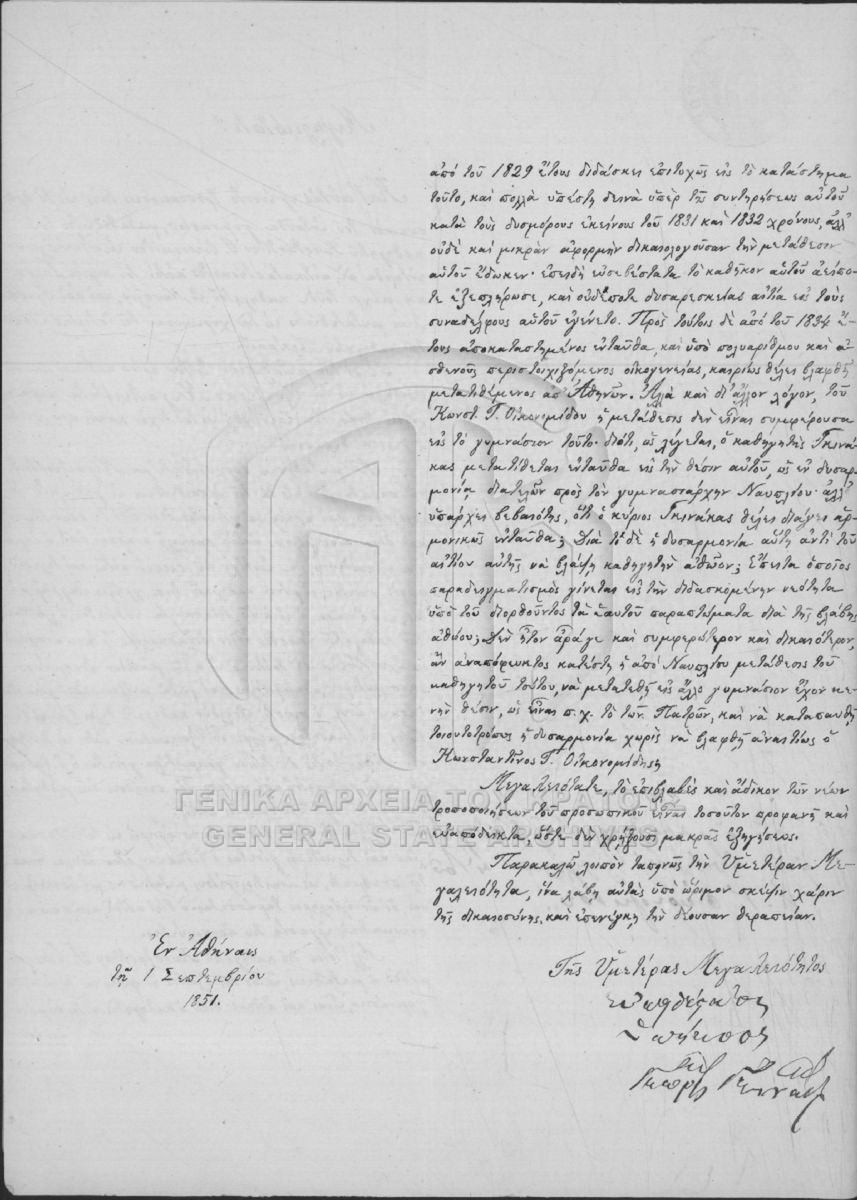 ἀπὸ τοῦ 1829 ἔτους διδάσκει ἐπιτυχῶς εἰς τὸ κατάστημα
τοῦτο, καὶ πολλὰ ὑπέστη δεινὰ ὑπὲρ τῆς συντηρήσεως αὐτοῦ
κατὰ τοὺς δυσμόρους ἐκείνους τοῦ 1831 καὶ 1832 χρόνους, ἀλλ'
οὐδὲ καὶ μικρὰν ἀφορμὴν δικαιολογοῦσαν τὴν μετάθεσιν
αὐτοῦ ἔδωκεν· ἐπειδὴ εὐσεβέστατα τὸ καθῆκον αὐτοῦ ἀείπο-
τε ἐξεπλήρωσε, καὶ οὐδέποτε δυσαρεσκείας αἰτία εἰς τοὺς
συναδέλφους αὐτοῦ ἐγένετο. Πρὸς τούτοις δὲ ἀπὸ τοῦ 1834 ἔ-
τους ἀποκαταστημένος ἐνταῦθα, καὶ ὑπὸ πολυαρίθμου καὶ ἀ-
σθενοῦς περιστοιχιζόμενος οἰκογενείας, καιρίως θέλει βλαφθῆ
μετατιθέμενος ἀπ' Ἀθηνῶν. Ἀλλὰ καὶ δι' ἄλλον λόγον, τοῦ
Κωνστ. Γ. Οἰκονομίδου ἡ μετάθεσις δὲν εἶναι συμφέρουσα
εἰς τὸ γυμνάσιον τοῦτο· διότι, ὡς λέγεται, ὁ καθηγητὴς Γκινά-
κας μετατίθεται ἐνταῦθα εἰς τὴν θέσιν αὐτοῦ, ὡς ἐν δυσαρ-
μονίᾳ διατελῶν πρὸς τὸν γυμνασιάρχην Ναυπλίου· ἀλλ'
ὑπάρχει βεβαιότης, ὅτι ὁ κύριος Γκινάκας θέλει διάγει ἁρ-
μονικῶς ἐνταῦθα; Διὰ τί δὲ ἡ δυσαρμονία αὕτη ἀντὶ τοῦ
αἰτίου αὐτῆς νὰ βλάψῃ καθηγητὴν ἀθῶον; Ἔπειτα ὁποῖος
παραδειγματισμὸς γίνεται εἰς τὴν διδασκομένην νεότητα
ὑπὸ τοῦ διορθοῦντος τὰ ἑαυτοῦ παραπτώματα διὰ τῆς βλάβης
ἀθώου; Δὲν ἦτον ἆρά γε καὶ συμφερώτερον καὶ δικαιότερον,
ἂν ἀναπόφευκτος κατέστη ἡ ἀπὸ Ναυπλίου μετάθεσις τοῦ
καθηγητοῦ τούτου, νὰ μετατεθῇ εἰς ἄλλο γυμνάσιον ἔχον κε-
νὴν θέσιν, ὡς εἶναι π.χ. τὸ τῶν Πατρῶν, καὶ νὰ καταπαυθῇ
τοιουτοτρόπως ἡ δυσαρμονία χωρὶς νὰ βλαφθῇ ἀναιτίως ὁ
Κωνσταντῖνος Γ. Οἰκονομίδης;
Μεγαλειότατε, τὸ ἐπιβλαβὲς καὶ ἄδικον τῶν νέων
τροποποιήσεων τοῦ προσωπικοῦ εἶναι τοσοῦτον προφανῆ καὶ
εὐαπόδεικτα, ὥστε δὲν χρῄζουσι μακρᾶς ἐξηγήσεως.
Παρακαλῶ λοιπὸν ταπεινῶς τὴν Ὑμετέραν Με-
γαλειότητα, ἵνα λάβῃ αὐτὰς ὑπὸ ὥριμον σκέψιν χάριν
τῆς δικαιοσύνης, καὶ ἐπενέγκῃ τὴν δέουσαν θεραπείαν.
Ἐν Ἀθήναις
τῇ 1 Σεπτεμβρίου
1851.
Τῆς Ὑμετέρας Μεγαλειότητος
Εὐπειθέστατος
Γεώργ. Γεννάδ
ΓΕΝΙΚΑ ΑΡΧΕΙΑ ΤΟΥ ΚΡΑΤΟΥΣ
GENERAL STATE ARCHIVES